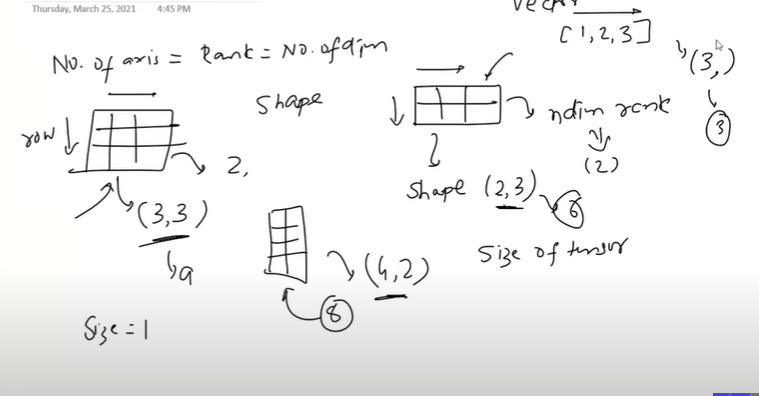 Thursday, March 25, 2021 4:45 PM
Vector
[1,2,3]
(3,)
3
No. of axis = Rank = No. of dim
Shape
row
2,
ndim rank
(2)
(3,3)
9
Shape (2,3)
6
Size of tensor
(4,2)
8
Size = 1